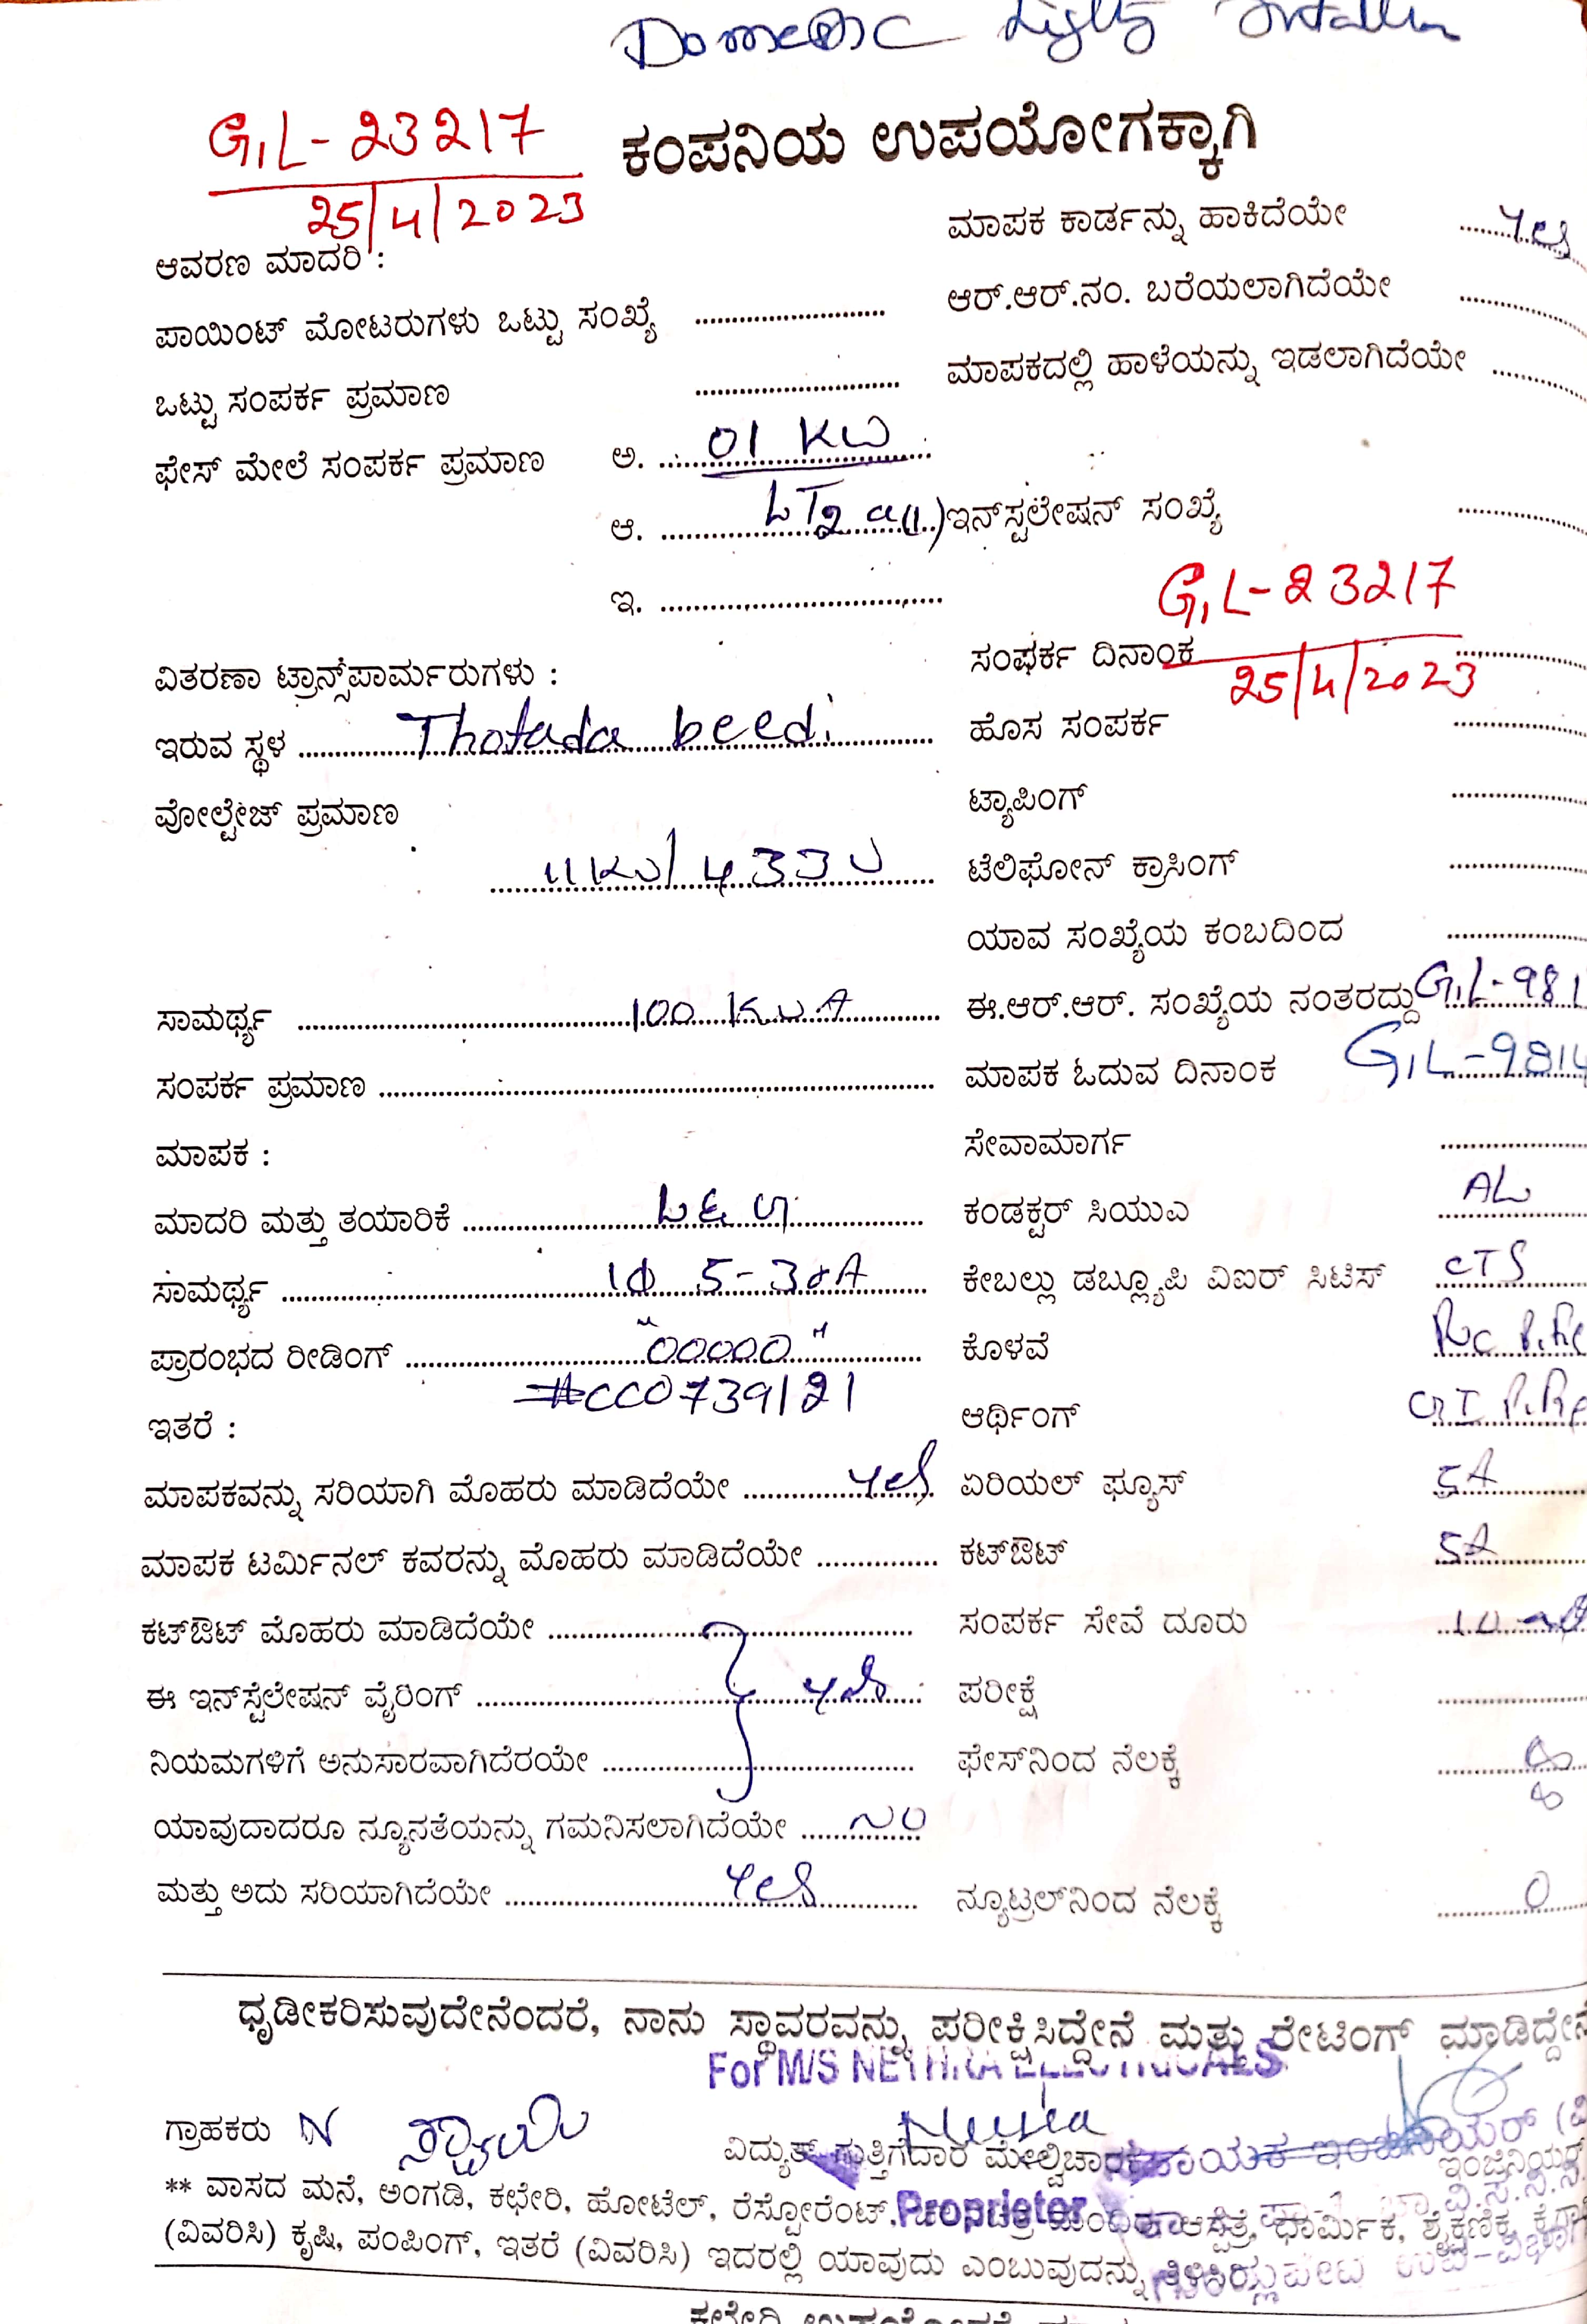 Domestic Lighting
ಕಂಪನಿಯ ಉಪಯೋಗಕ್ಕಾಗಿ
G,L-23217
25/4/2023
ಆವರಣ ಮಾದರಿ :
ಪಾಯಿಂಟ್ ಮೋಟರುಗಳು ಒಟ್ಟು ಸಂಖ್ಯೆ
ಒಟ್ಟು ಸಂಪರ್ಕ ಪ್ರಮಾಣ
ಫೇಸ್ ಮೇಲೆ ಸಂಪರ್ಕ ಪ್ರಮಾಣ ಅ. 01 KW
ಆ. LT2 a(1)
ಇ.
ವಿತರಣಾ ಟ್ರಾನ್ಸ್‌ಪಾರ್ಮರುಗಳು :
ಇರುವ ಸ್ಥಳ Thotada beedi
ವೋಲ್ಟೇಜ್ ಪ್ರಮಾಣ
11KV/433V
ಸಾಮರ್ಥ್ಯ 100 KVA
ಸಂಪರ್ಕ ಪ್ರಮಾಣ
ಮಾಪಕ :
ಮಾದರಿ ಮತ್ತು ತಯಾರಿಕೆ L&G
ಸಾಮರ್ಥ್ಯ 1Φ 5-30A
ಪ್ರಾರಂಭದ ರೀಡಿಂಗ್ "00000"
#CC0739121
ಇತರೆ :
ಮಾಪಕವನ್ನು ಸರಿಯಾಗಿ ಮೊಹರು ಮಾಡಿದೆಯೇ Yes
ಮಾಪಕ ಟರ್ಮಿನಲ್ ಕವರನ್ನು ಮೊಹರು ಮಾಡಿದೆಯೇ
ಕಟ್‌ಔಟ್ ಮೊಹರು ಮಾಡಿದೆಯೇ
ಈ ಇನ್‌ಸ್ಟೆಲೇಷನ್ ವೈರಿಂಗ್ } yes
ನಿಯಮಗಳಿಗೆ ಅನುಸಾರವಾಗಿದೆರಯೇ
ಯಾವುದಾದರೂ ನ್ಯೂನತೆಯನ್ನು ಗಮನಿಸಲಾಗಿದೆಯೇ NO
ಮತ್ತು ಅದು ಸರಿಯಾಗಿದೆಯೇ Yes
ಮಾಪಕ ಕಾರ್ಡನ್ನು ಹಾಕಿದೆಯೇ Yes
ಆರ್.ಆರ್.ನಂ. ಬರೆಯಲಾಗಿದೆಯೇ
ಮಾಪಕದಲ್ಲಿ ಹಾಳೆಯನ್ನು ಇಡಲಾಗಿದೆಯೇ
ಇನ್‌ಸ್ಟಲೇಷನ್ ಸಂಖ್ಯೆ
G,L-23217
ಸಂಪರ್ಕ ದಿನಾಂಕ
25/4/2023
ಹೊಸ ಸಂಪರ್ಕ
ಟ್ಯಾಪಿಂಗ್
ಟೆಲಿಫೋನ್ ಕ್ರಾಸಿಂಗ್
ಯಾವ ಸಂಖ್ಯೆಯ ಕಂಬದಿಂದ
ಈ.ಆರ್.ಆರ್. ಸಂಖ್ಯೆಯ ನಂತರದ್ದು G,L-981
ಮಾಪಕ ಓದುವ ದಿನಾಂಕ G,L-9814
ಸೇವಾಮಾರ್ಗ
ಕಂಡಕ್ಟರ್ ಸಿಯುಎ AL
ಕೇಬಲ್ಲು ಡಬ್ಲ್ಯೂಪಿ ವಿಐರ್ ಸಿಟಿಸ್ CTS
ಕೊಳವೆ
ಆರ್ಥಿಂಗ್ GI
ಏರಿಯಲ್ ಫ್ಯೂಸ್ 5A
ಕಟ್‌ಔಟ್ 5A
ಸಂಪರ್ಕ ಸೇವೆ ದೂರು
ಪರೀಕ್ಷೆ
ಫೇಸ್‌ನಿಂದ ನೆಲಕ್ಕೆ
ನ್ಯೂಟ್ರಲ್‌ನಿಂದ ನೆಲಕ್ಕೆ 0
ಧೃಡೀಕರಿಸುವುದೇನೆಂದರೆ, ನಾನು ಸ್ಥಾವರವನ್ನು ಪರೀಕ್ಷಿಸಿದ್ದೇನೆ ಮತ್ತು ರೇಟಿಂಗ್ ಮಾಡಿದ್ದೇನೆ
For M/S NETHRA ELECTRICALS
ಗ್ರಾಹಕರು N
ವಿದ್ಯುತ್ ಗುತ್ತಿಗೆದಾರ ಮೇಲ್ವಿಚಾರಕ
Proprietor
** ವಾಸದ ಮನೆ, ಅಂಗಡಿ, ಕಛೇರಿ, ಹೋಟೆಲ್, ರೆಸ್ಟೋರೆಂಟ್, ಆಸ್ಪತ್ರೆ, ಧಾರ್ಮಿಕ, ಶೈಕ್ಷಣಿಕ,
(ವಿವರಿಸಿ) ಕೃಷಿ, ಪಂಪಿಂಗ್, ಇತರೆ (ವಿವರಿಸಿ) ಇದರಲ್ಲಿ ಯಾವುದು ಎಂಬುವುದನ್ನು ತಿಳಿಸಿರಿ